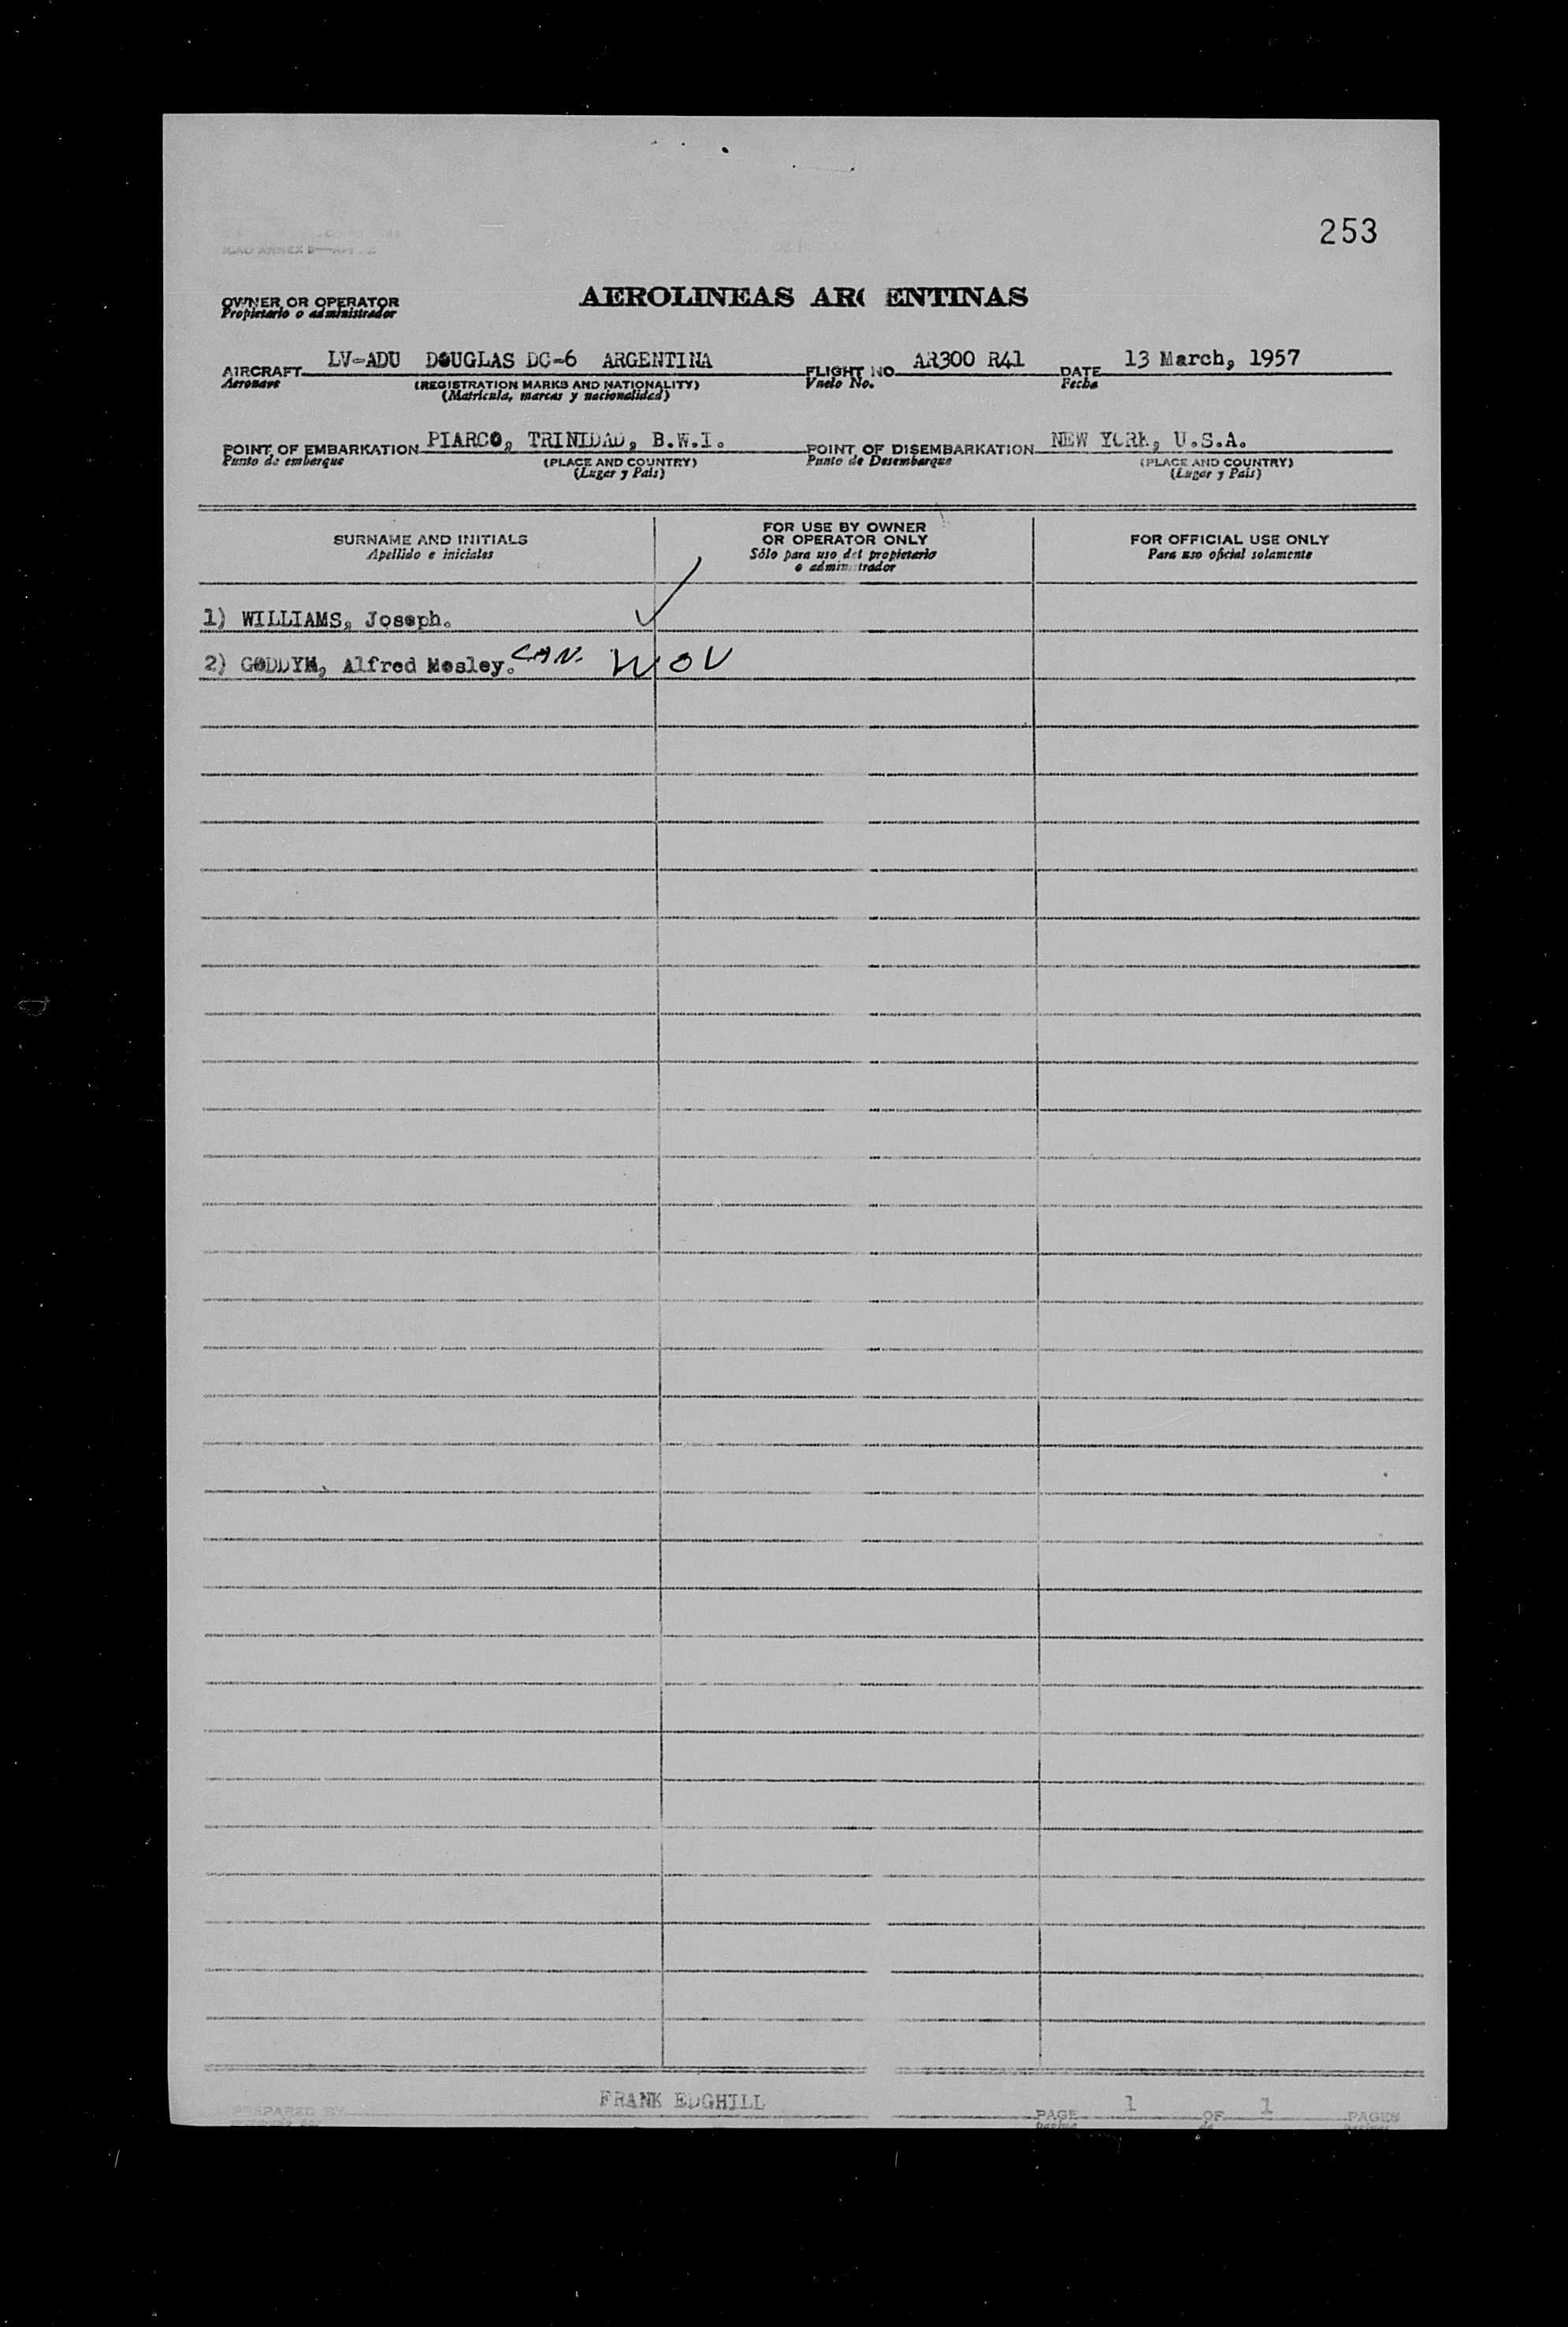 253
ICAO ANNEX 9—APP. 2
OWNER OR OPERATOR
Propietario o administrador
AEROLINEAS ARGENTINAS
AIRCRAFT LV-ADU DOUGLAS DC-6 ARGENTINA FLIGHT NO. AR300 R41 DATE 13 March, 1957
Aeronave (REGISTRATION MARKS AND NATIONALITY) Vuelo No. Fecha
(Matricula, marcas y nacionalidad)
POINT OF EMBARKATION PIARCO, TRINIDAD, B.W.I. POINT OF DISEMBARKATION NEW YORK, U.S.A.
Punto de embarque (PLACE AND COUNTRY) Punto de Desembarque (PLACE AND COUNTRY)
(Lugar y Pais) (Lugar y Pais)
SURNAME AND INITIALS
Apellido e iniciales
FOR USE BY OWNER
OR OPERATOR ONLY
Sólo para uso del propietario
o administrador
FOR OFFICIAL USE ONLY
Para uso oficial solamente
1) WILLIAMS, Joseph.
2) GODDYN, Alfred Mesley. CAN. WOV
FRANK EDGHILL
PREPARED BY PAGE 1 OF 1 PAGES
pagina de paginas